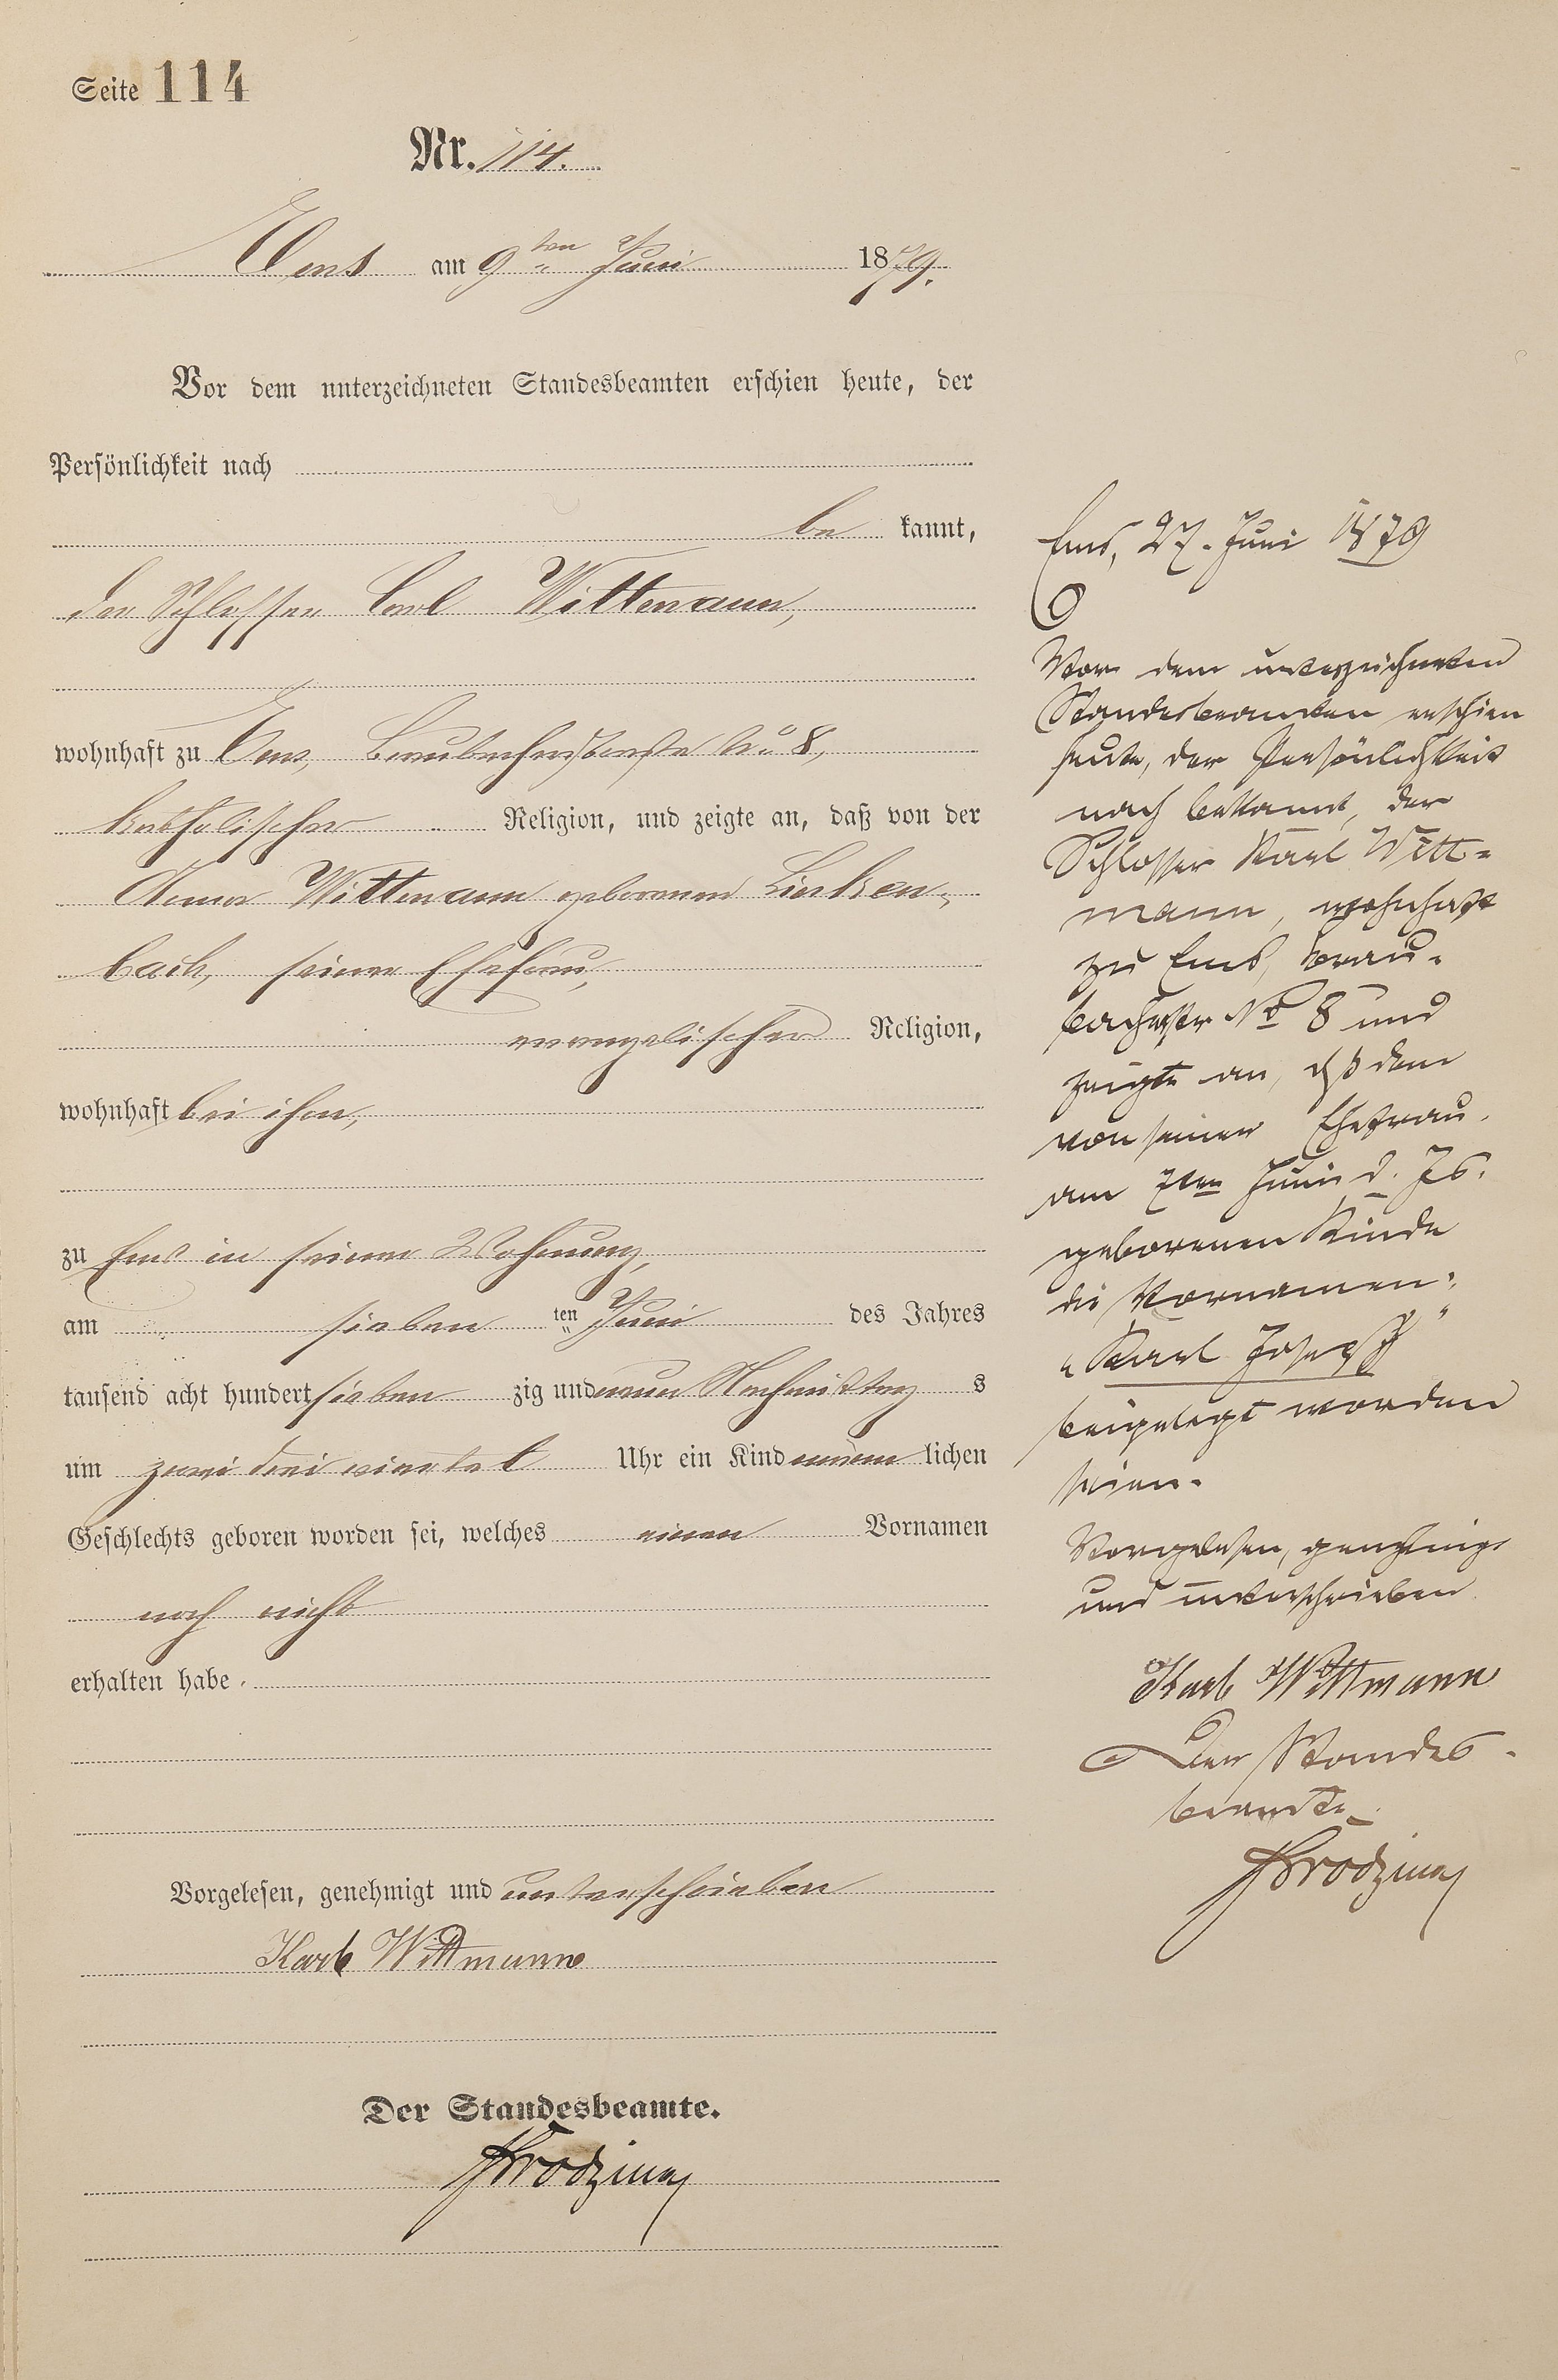 Seite 114
Nr. 114.
Ems am 9ten Juni 1879.
Vor dem unterzeichneten Standesbeamten erschien heute, der
Persönlichkeit nach
be kannt,
der Schlosser Carl Wittmann,
wohnhaft zu Ems, Braubacherstraße No 8,
katholischer Religion, und zeigte an, daß von der
Anna Wittmann geborenen Linken-
bach, seiner Ehefrau,
evangelischer Religion,
wohnhaft bei ihm,
zu Ems in seiner Wohnung,
am sieben ten Juni des Jahres
tausend acht hundert sieben zig und neun Nachmittag s
um zwei drei viertel Uhr ein Kind männ lichen
Geschlechts geboren worden sei, welches einen Vornamen
noch nicht
erhalten habe.
Vorgelesen, genehmigt und unterschrieben
Karl Wittmann
Der Standesbeamte.
Ems, 27. Juni 1879
Vor dem unterzeichneten
Standesbeamten erschien
heute, der Persönlichkeit
nach bekannt, der
Schlosser Karl Witt-
mann, wohnhaft
zu Ems, Brau-
bacherstr No 8 und
zeigte an, dß dem
von seiner Ehefrau
am 7ten Juni d. Js.
geborenen Kinde
die Vornamen:
"Karl Joseph"
beigelegt worden
seien.
Vorgelesen, genehmigt
und unterschrieben
Karl Wittmann
Der Standes-
beamte.